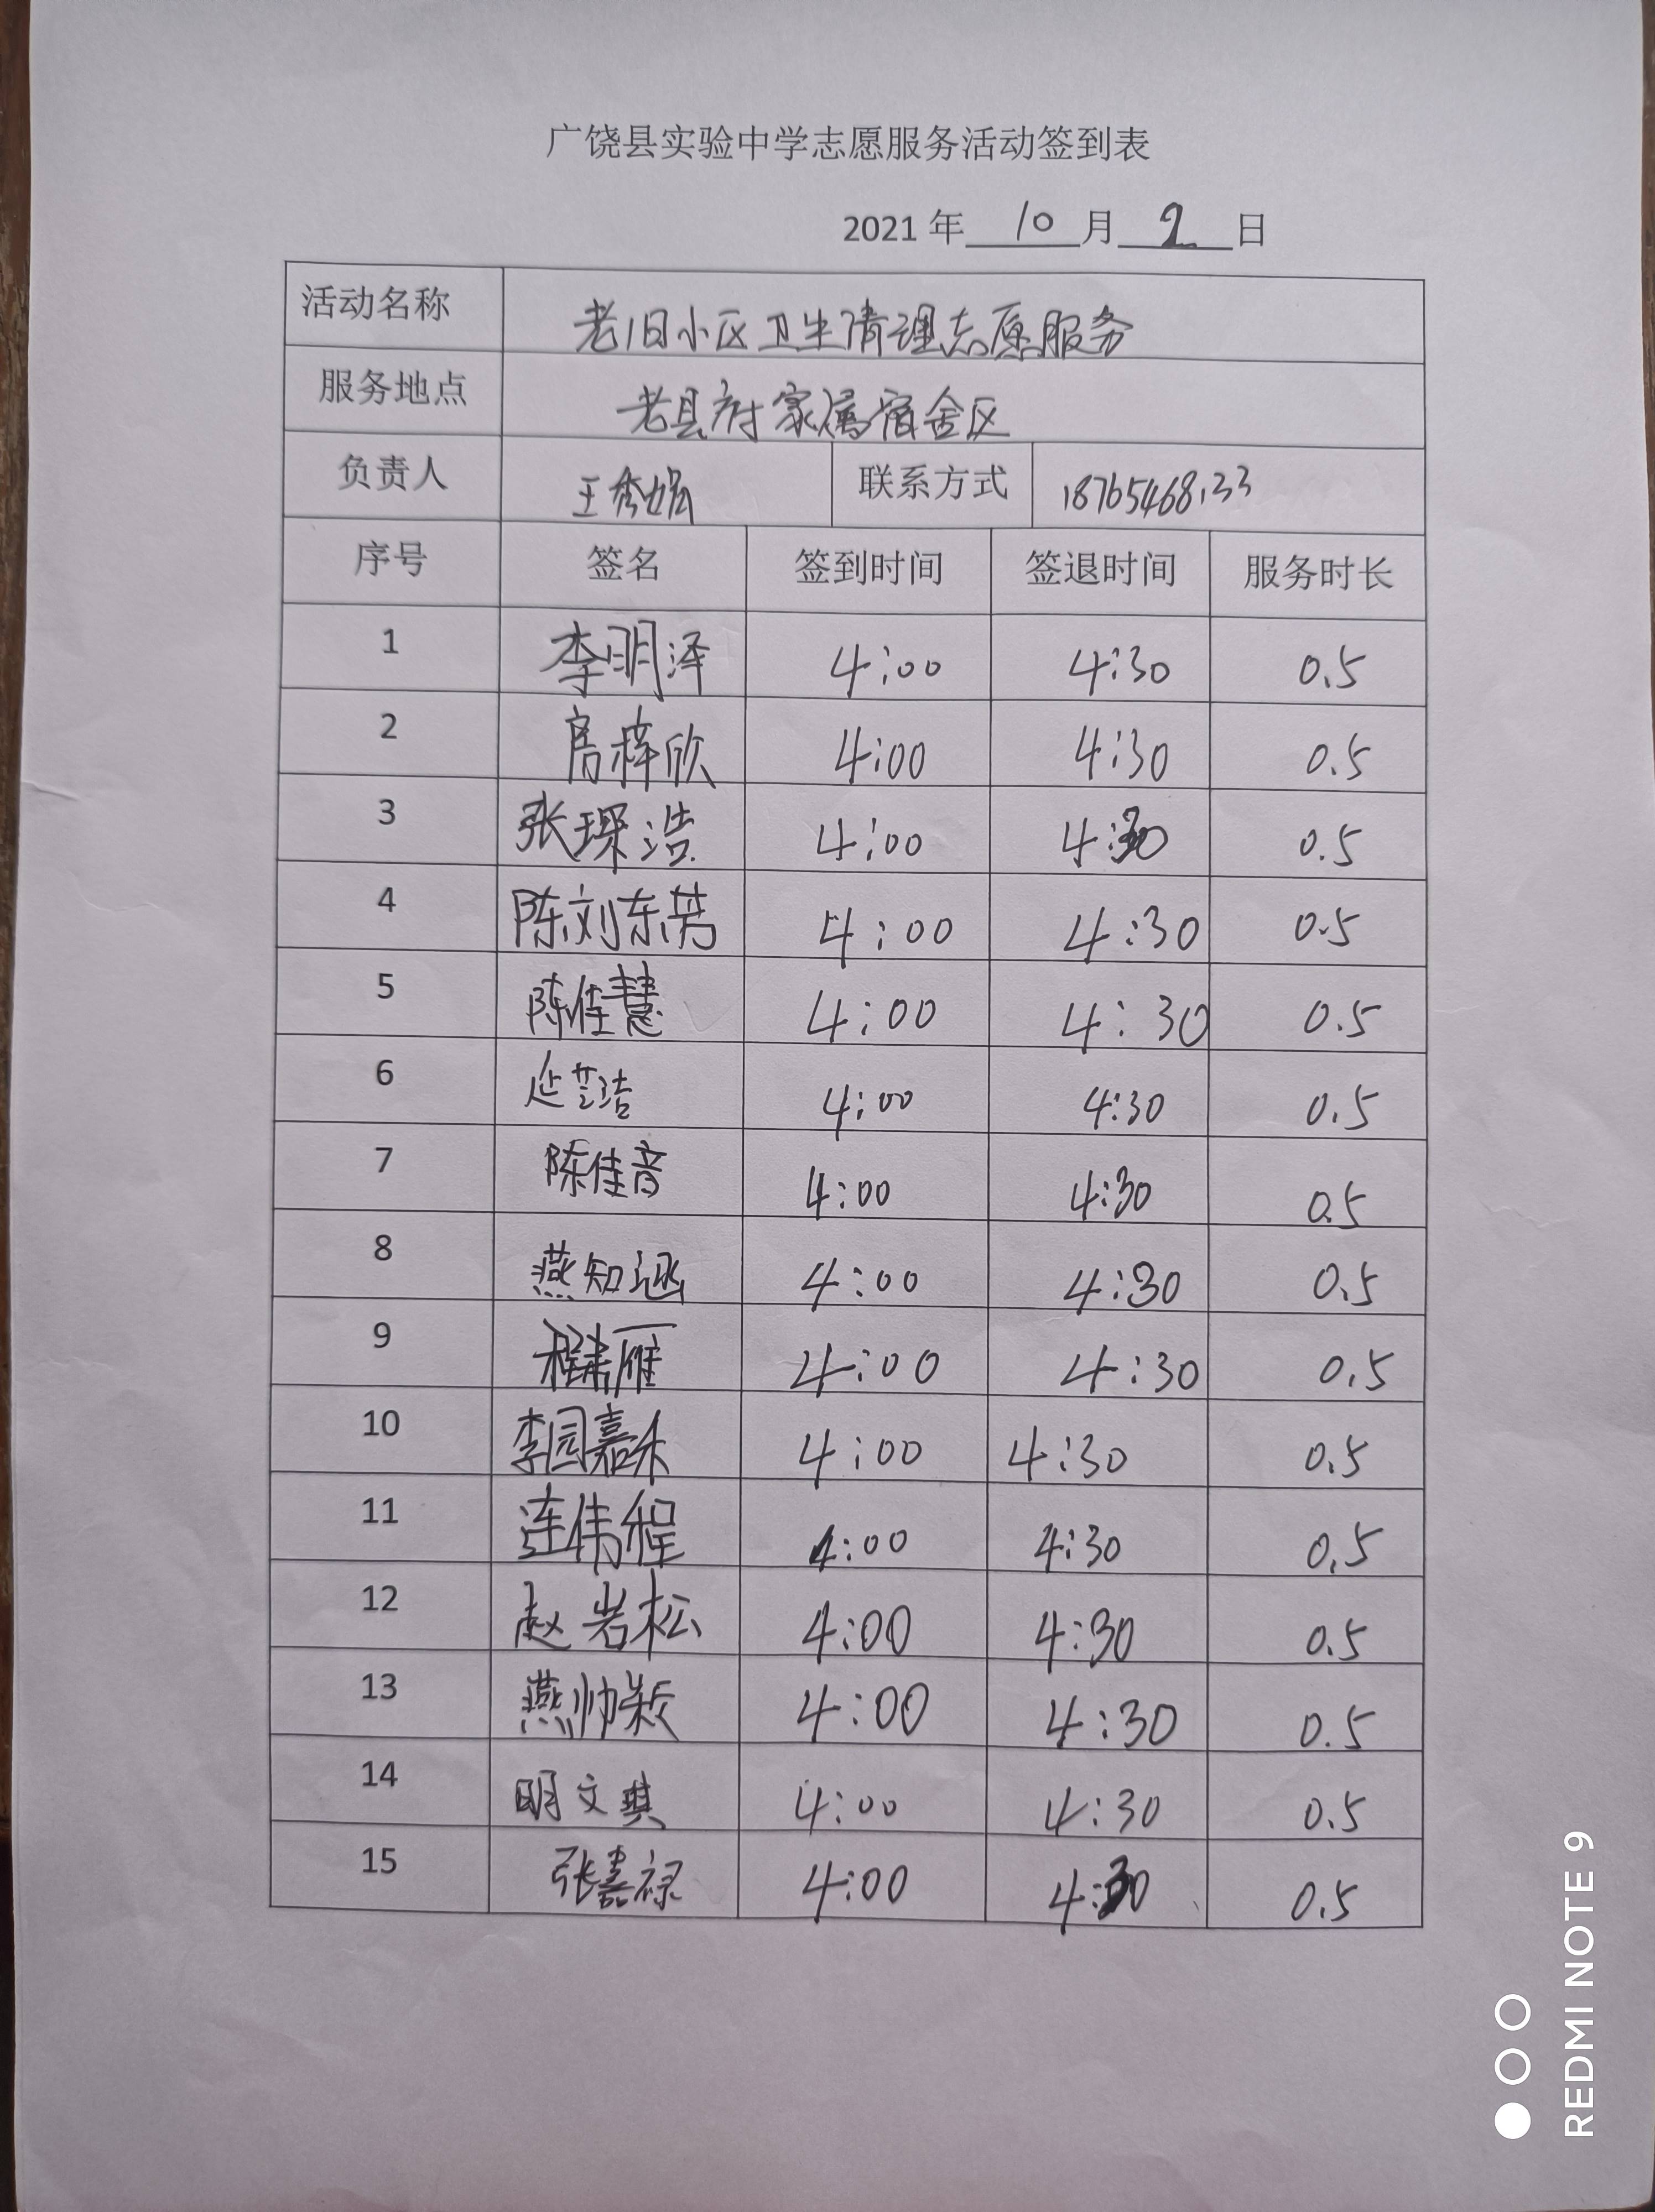 广饶县实验中学志愿服务活动签到表
2021 年 10 月 2 日
活动名称 老旧小区卫生清理志愿服务
服务地点 老县府家属宿舍区
负责人 王秀娟 联系方式 18765468133
序号 签名 签到时间 签退时间 服务时长
1 李明泽 4:00 4:30 0.5
2 房梓欣 4:00 4:30 0.5
3 张琛浩 4:00 4:30 0.5
4 陈刘东芳 4:00 4:30 0.5
5 陈佳慧 4:00 4:30 0.5
6 4:00 4:30 0.5
7 陈佳音 4:00 4:30 0.5
8 燕知涵 4:00 4:30 0.5
9 4:00 4:30 0.5
10 李园嘉禾 4:00 4:30 0.5
11 连伟程 4:00 4:30 0.5
12 赵岩松 4:00 4:30 0.5
13 燕帅颖 4:00 4:30 0.5
14 明文琪 4:00 4:30 0.5
15 张嘉禄 4:00 4:30 0.5
REDMI NOTE 9